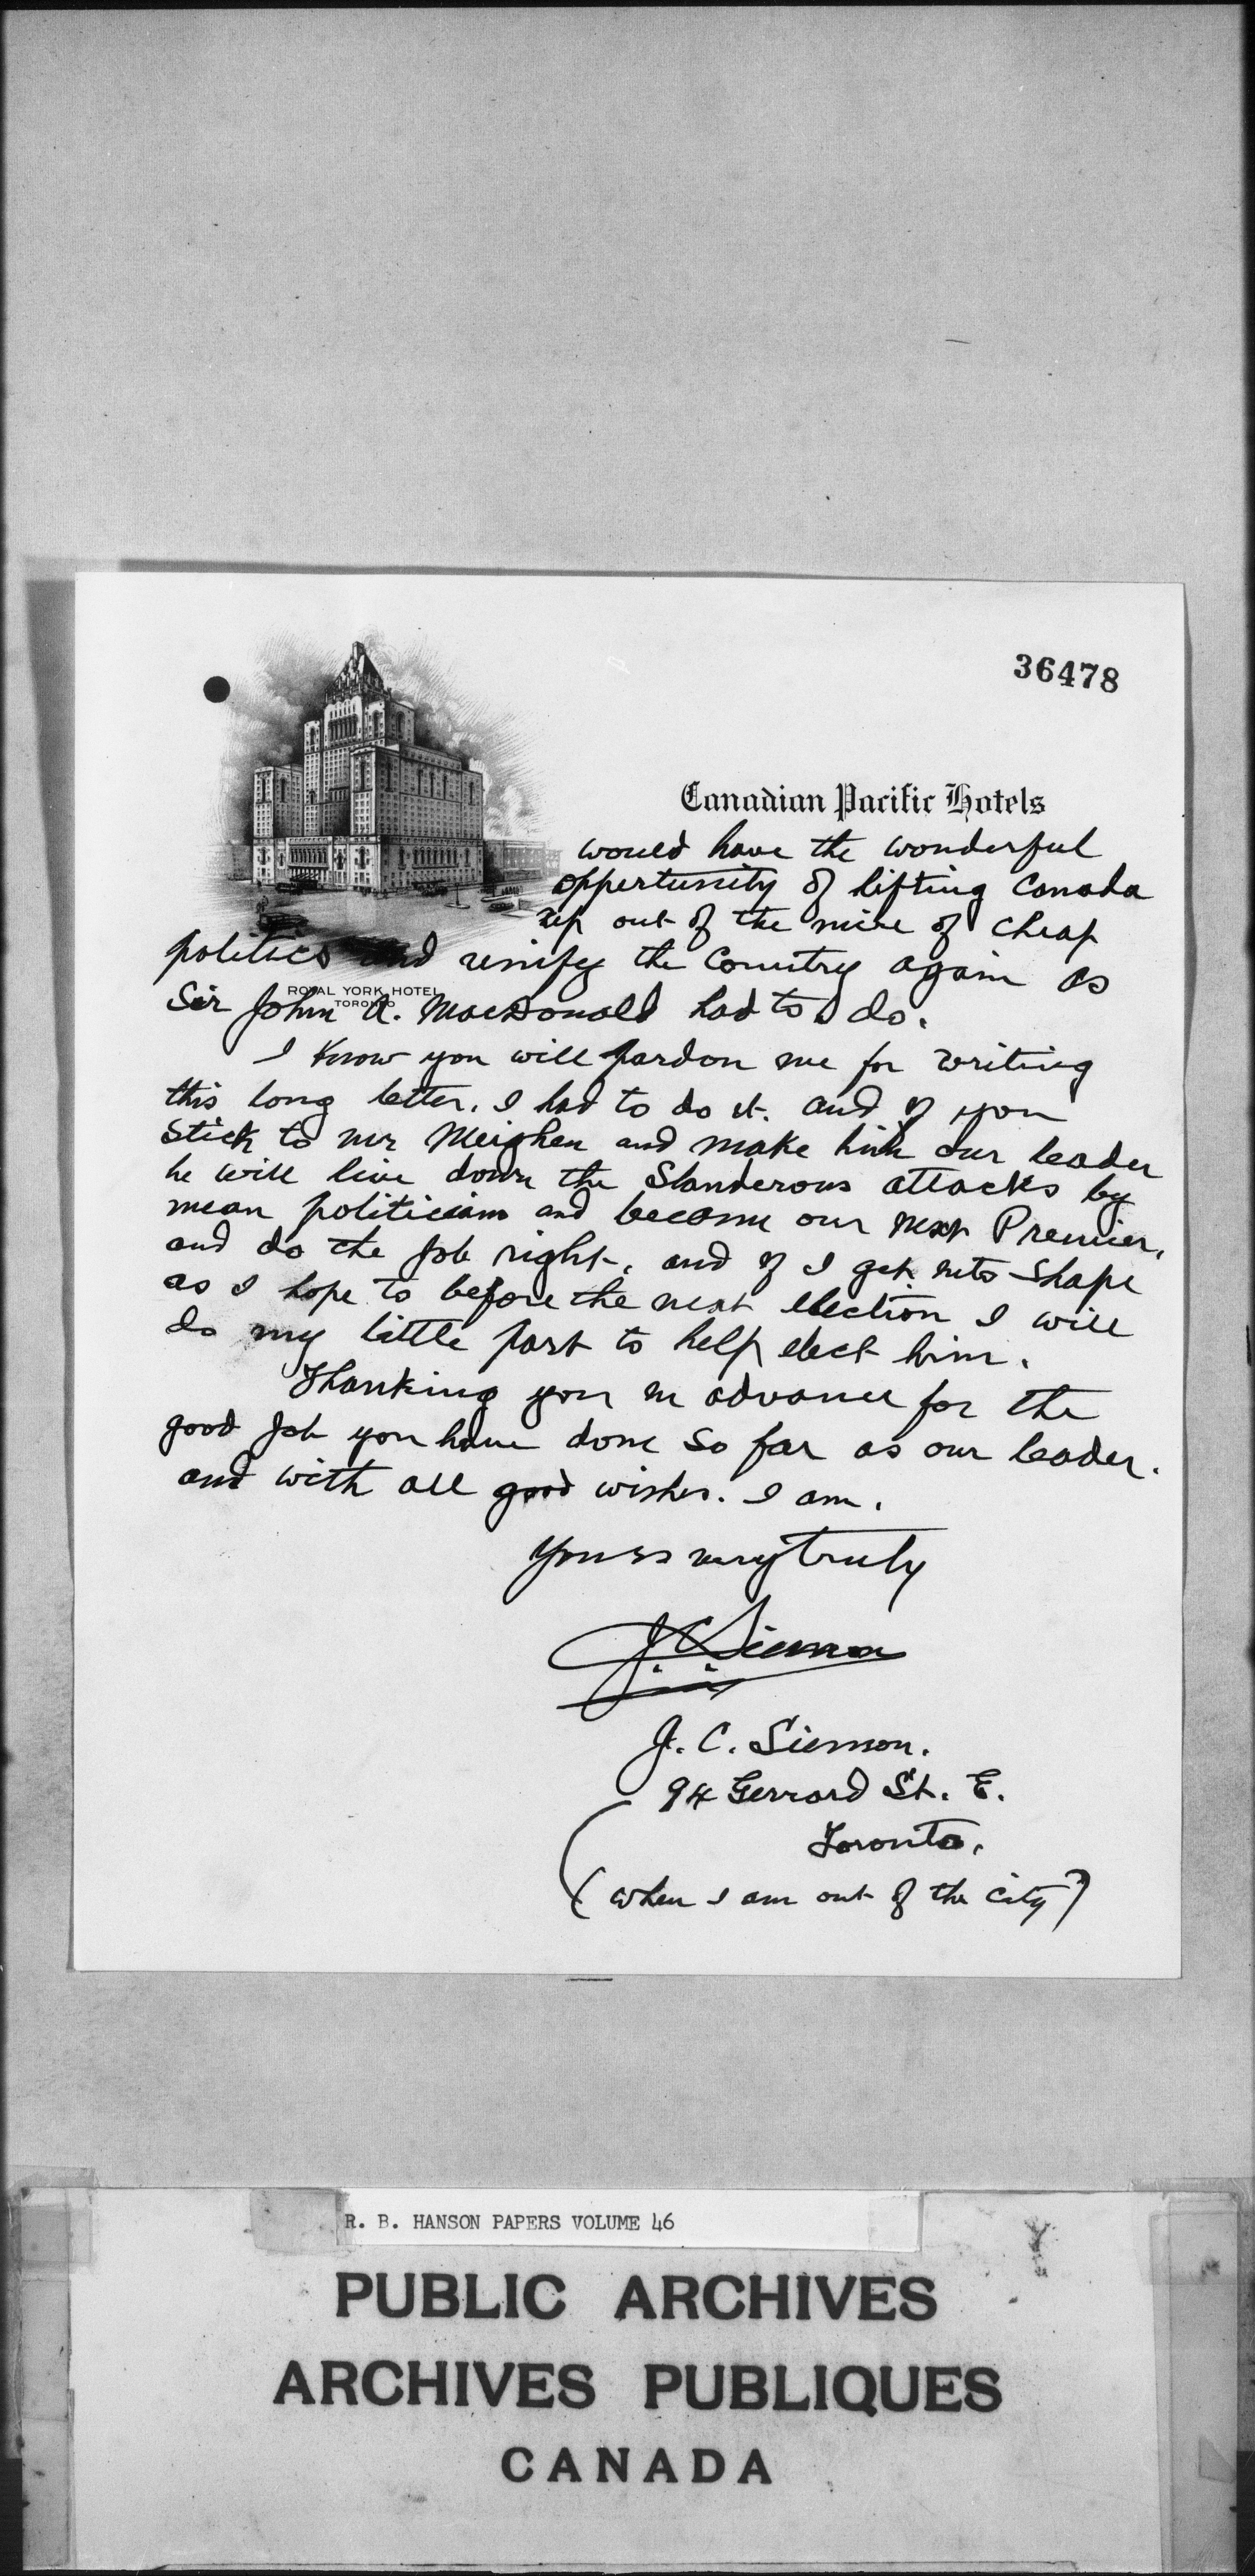 36478
Canadian Pacific Hotels
would have the wonderful
oppertunity of lifting Canada
up out of the mire of cheap
politics and unify the Country again as
ROYAL YORK HOTEL
TORONTO
Sir John A. MacDonald had to do.
I know you will pardon me for writing
this long letter. I had to do it. and if you
stick to mr Meighen and make him our leader
he will live down the Slanderous attacks by
mean politicians and become our next Premier,
and do the job right. and if I get into shape
as I hope to before the next election I will
do my little part to help elect him.
Thanking you in advance for the
good job you have done so far as our leader.
and with all good wishes. I am.
Yours very truly
J C Siemon
J. C. Siemon.
94 Gerrard St. E.
Toronto.
(when I am out of the city)
R. B. HANSON PAPERS VOLUME 46
PUBLIC ARCHIVES
ARCHIVES PUBLIQUES
CANADA